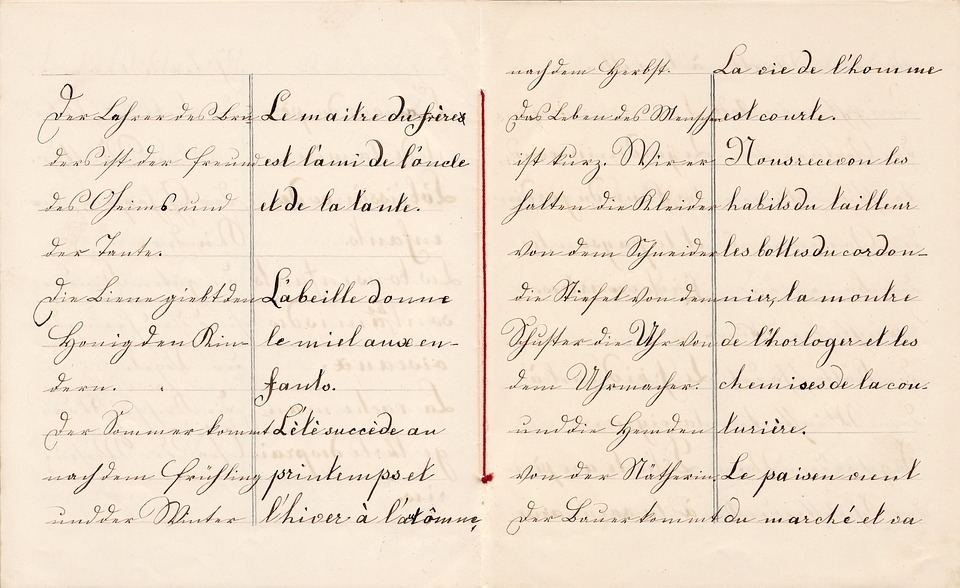 Der Lehrer des Bru
ders ist der Freund
des Oheims und
der Tante.
Die Biene giebt den
Honig den Kin-
dern.
Der Sommer kommt
nach dem Frühling
und der Winter
Le maitre du frères
est l'ami de l'oncle
et de la tante.
L'abeille donne
le miel aux en-
fants.
L'étè succède au
printemps et
l'hiver à l'automne
nach dem Herbst.
Das Leben des Menschen
ist kurz. Wir er
halten die Kleider
von dem Schneider
die Stiefel von dem
Schuster die Uhr von
dem Uhrmacher.
und die Hemden
von der Nätherin.
Der Bauer kommt
La vie de l'homme
est courte.
Nous recevon les
habits du tailleur
les bottes du cordon-
nier, la montre
de l'horloger et les
chemises de la cou-
turière.
Le paisen vient
du marché et va